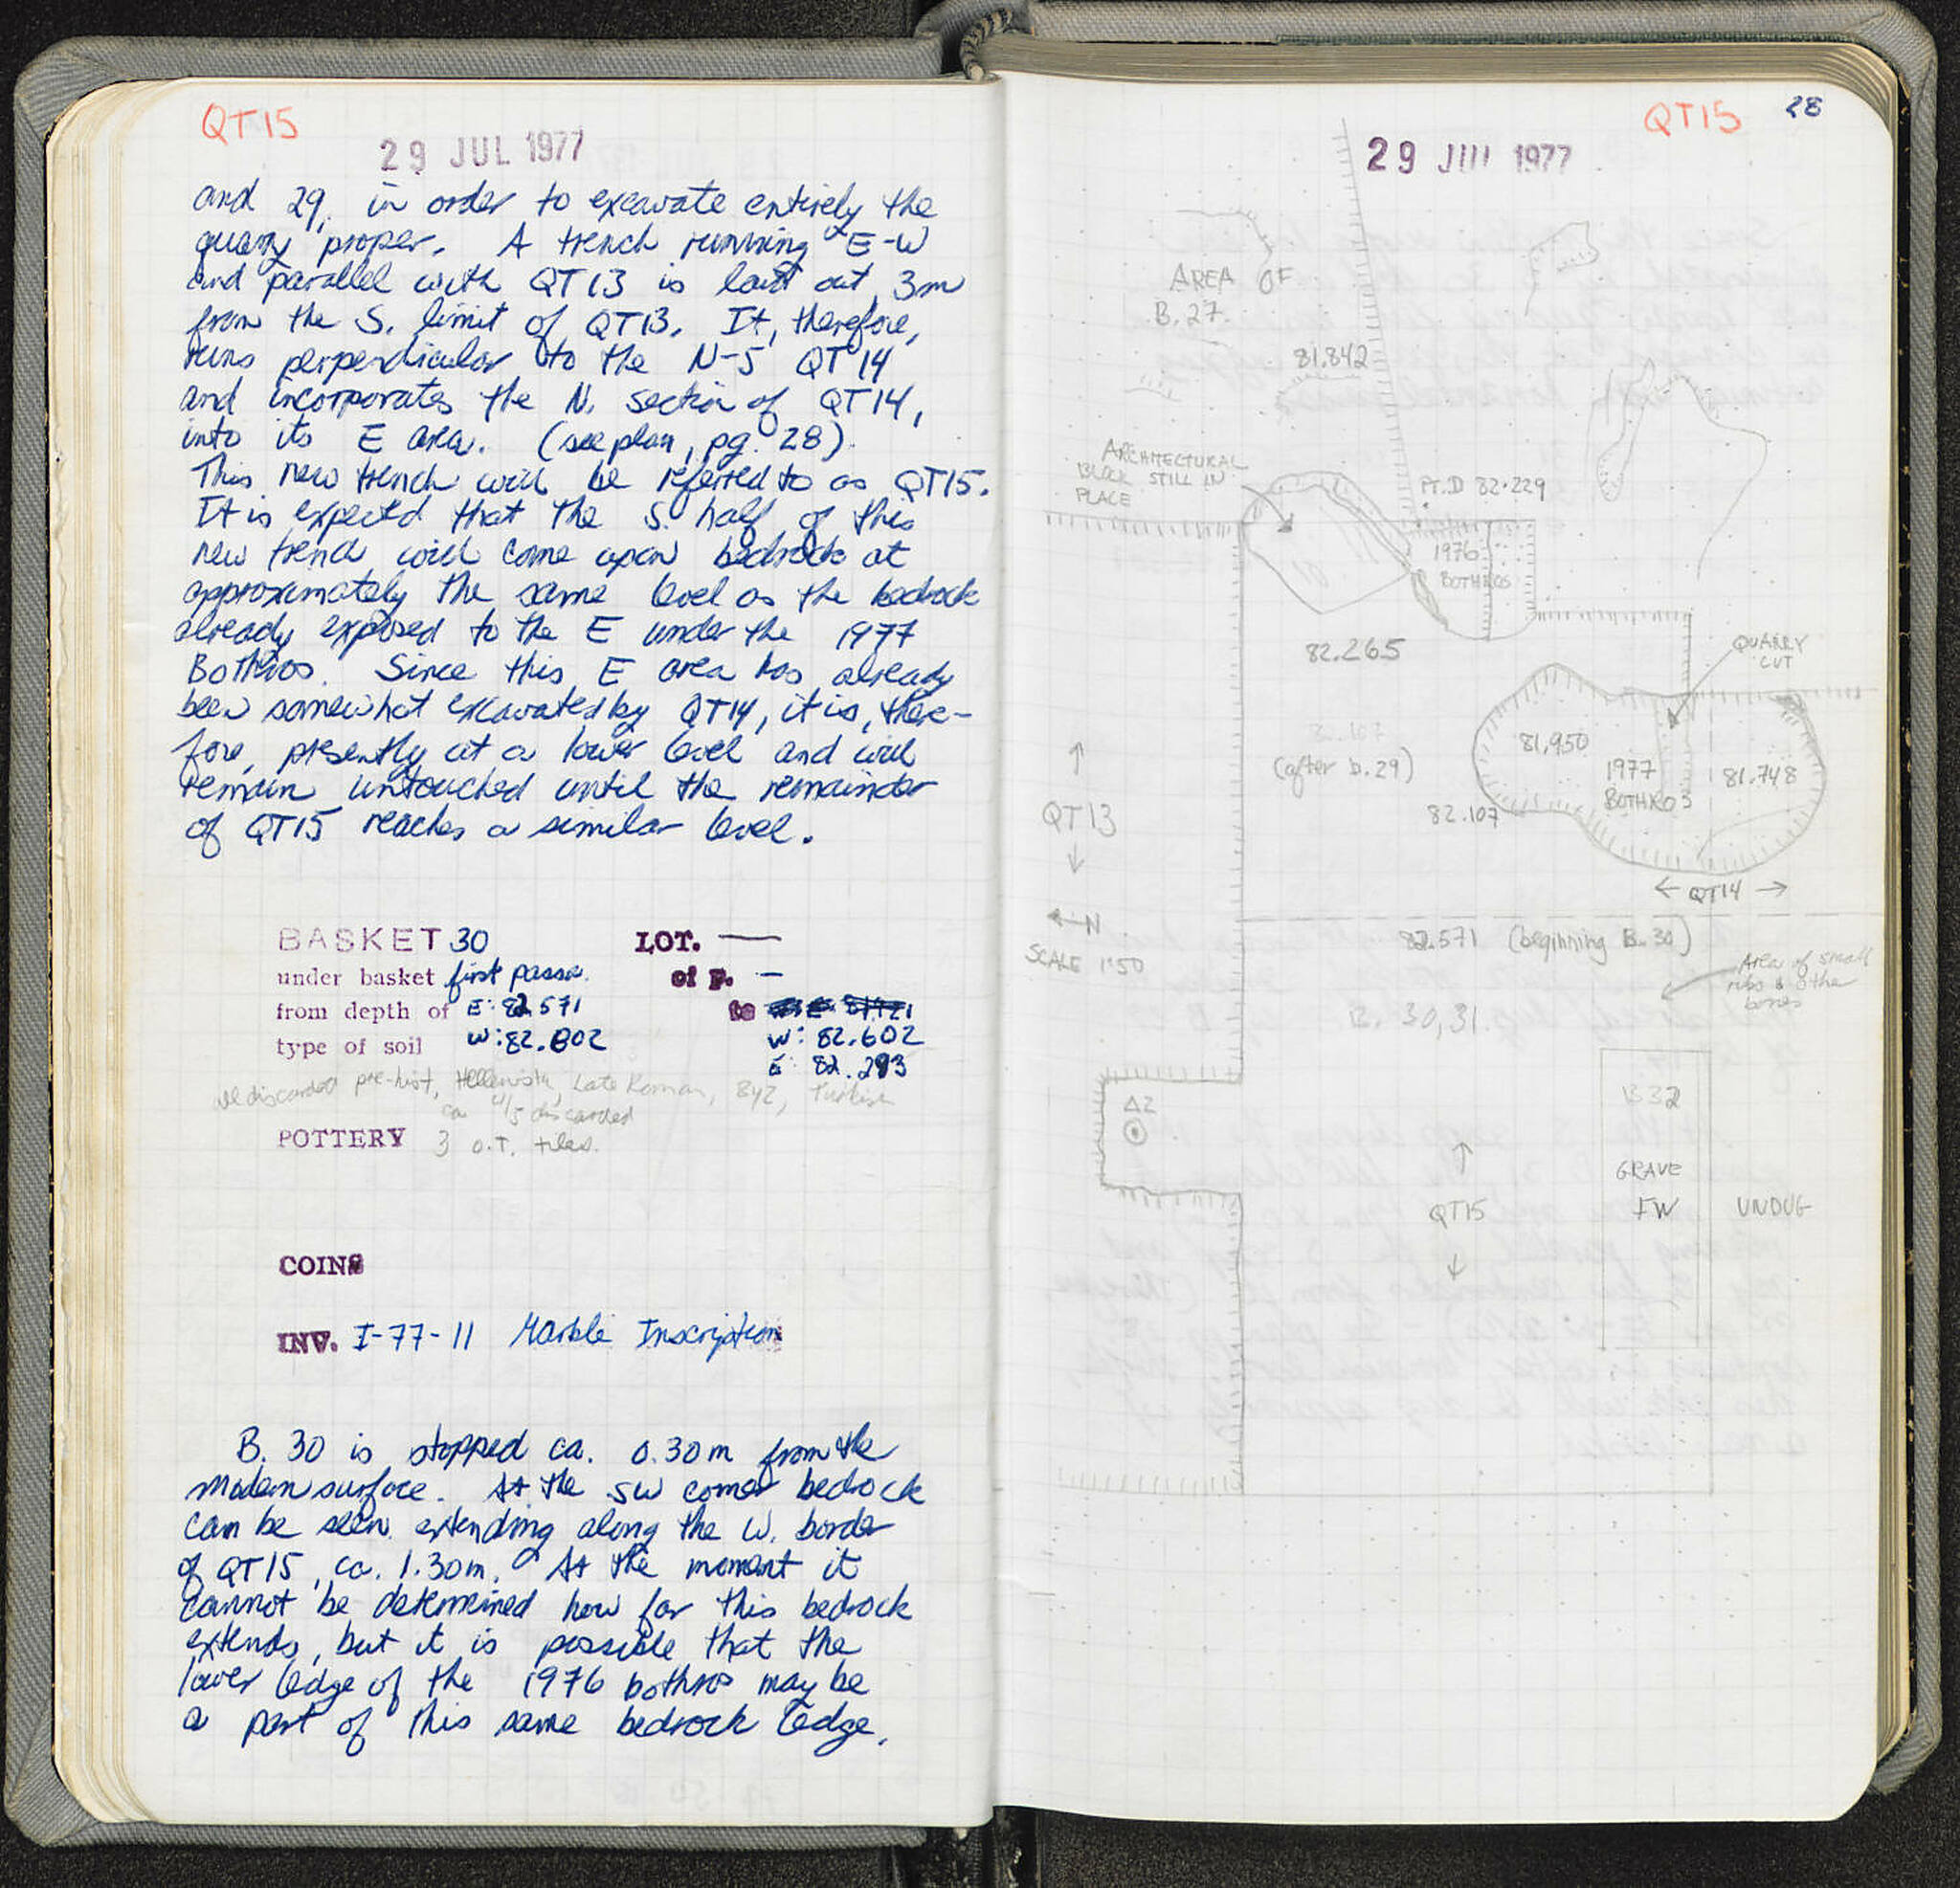 QT15
29 JUL 1977
and 29, in order to excavate entirely the
quarry proper. A trench running E-W
and parallel with QT13 is laid out, 3m
from the S. limit of QT13. It, therefore,
runs perpendicular to the N-S QT14
and incorporates the N. section of QT14,
into its E area. (see plan, pg. 28).
This new trench will be referred to as QT15.
It is expected that the S. half of this
new trench will come upon bedrock at
approximately the same level as the bedrock
already exposed to the E under the 1977
Bothros. Since this E area has already
been somewhat excavated by QT14, it is, there-
fore, presently at a lower level and will
remain untouched until the remainder
of QT15 reaches a similar level.
BASKET 30 LOT. —
under basket first passa. of p. —
from depth of E: 82.571 to
type of soil W: 82.802 W: 82.602
E: 82.293
all discarded pre-hist, Hellenistic, Late Roman, BYZ, Turkish
ca 4/5 discarded
POTTERY 3 O.T. tiles.
COINS
INV. I-77-11 Marble Inscription
B. 30 is stopped ca. 0.30m from the
modern surface. At the SW corner bedrock
can be seen extending along the W. border
of QT15, ca. 1.30m. At the moment it
cannot be determined how far this bedrock
extends, but it is possible that the
lower ledge of the 1976 bothros may be
a part of this same bedrock ledge.
QT15 28
29 JUL 1977
AREA OF
B. 27.
81.842
ARCHITECTURAL
BLOCK STILL IN
PLACE
PT.D 82.229
1976
BOTHROS
82.265
QUARRY
CUT
82.107
(after b.29)
81.950
1977
BOTHROS
81.748
82.107
↑
QT13
↓
← QT14 →
←N
SCALE 1:50
82.571 (beginning B. 30)
Area of small
ribs & other
bones
B. 30, 31.
B32
Δ2
GRAVE
FW
↑
QT15
↓
UNDUG